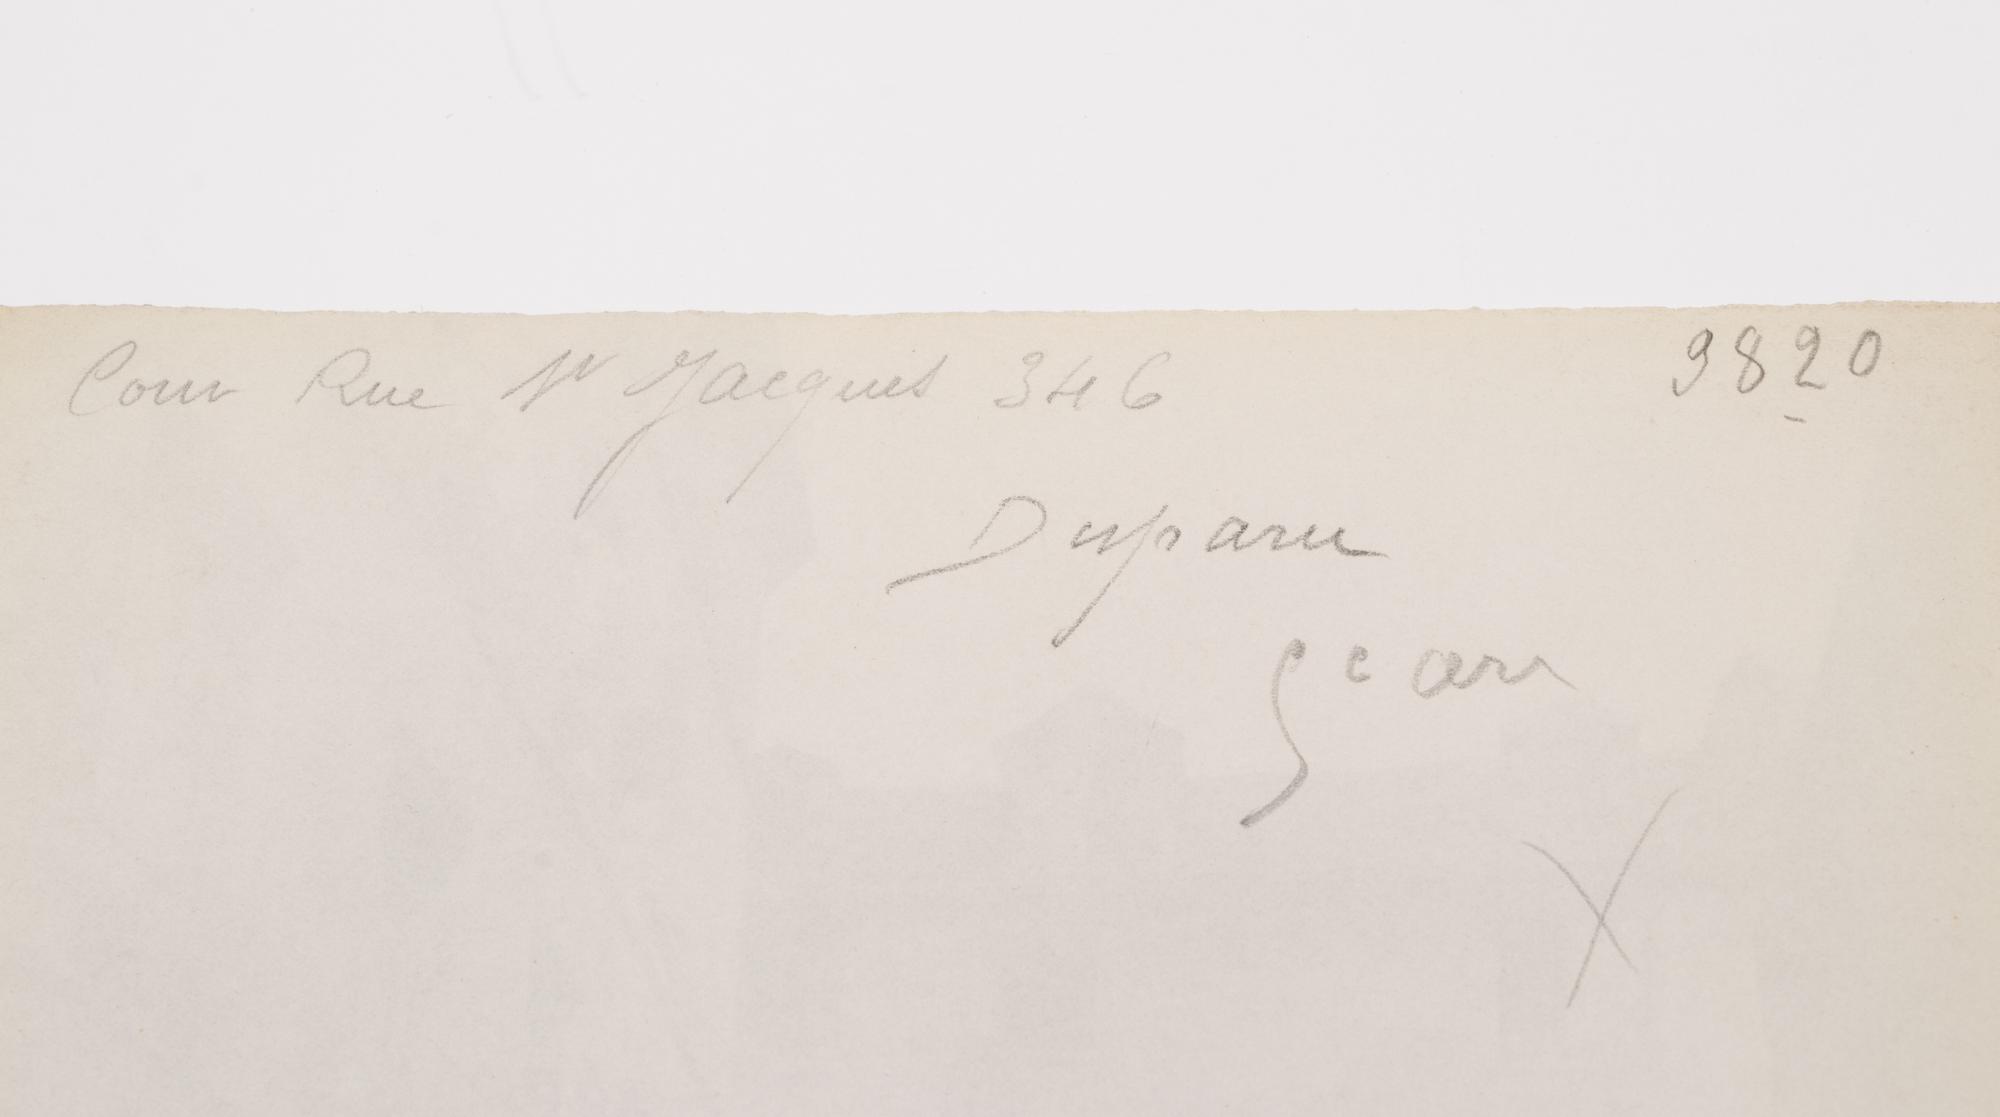 Cour Rue St Jacques 346
9820
Disparu
5e arr
X